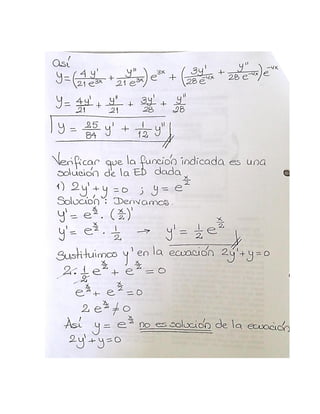 Así
y = (4y'/21e^3x + y''/21e^3x) e^3x + (3y'/28e^-4x + y''/28e^-4x) e^-4x
y = 4y'/21 + y''/21 + 3y'/28 + y''/28
y = 25/84 y' + 1/12 y''
Verificar que la función indicada es una
solución de la ED dada
1) 2y'+y=0 ; y = e^x/2
Solución: Derivamos
y' = e^x/2 . (x/2)'
y' = e^x/2 . 1/2 → y' = 1/2 e^x/2
Sustituimos y' en la ecuación 2y'+y=0
2. 1/2 e^x/2 + e^x/2 = 0
e^x/2 + e^x/2 = 0
2 e^x/2 ≠ 0
Así y = e^x/2 no es solución de la ecuación
2y'+y=0